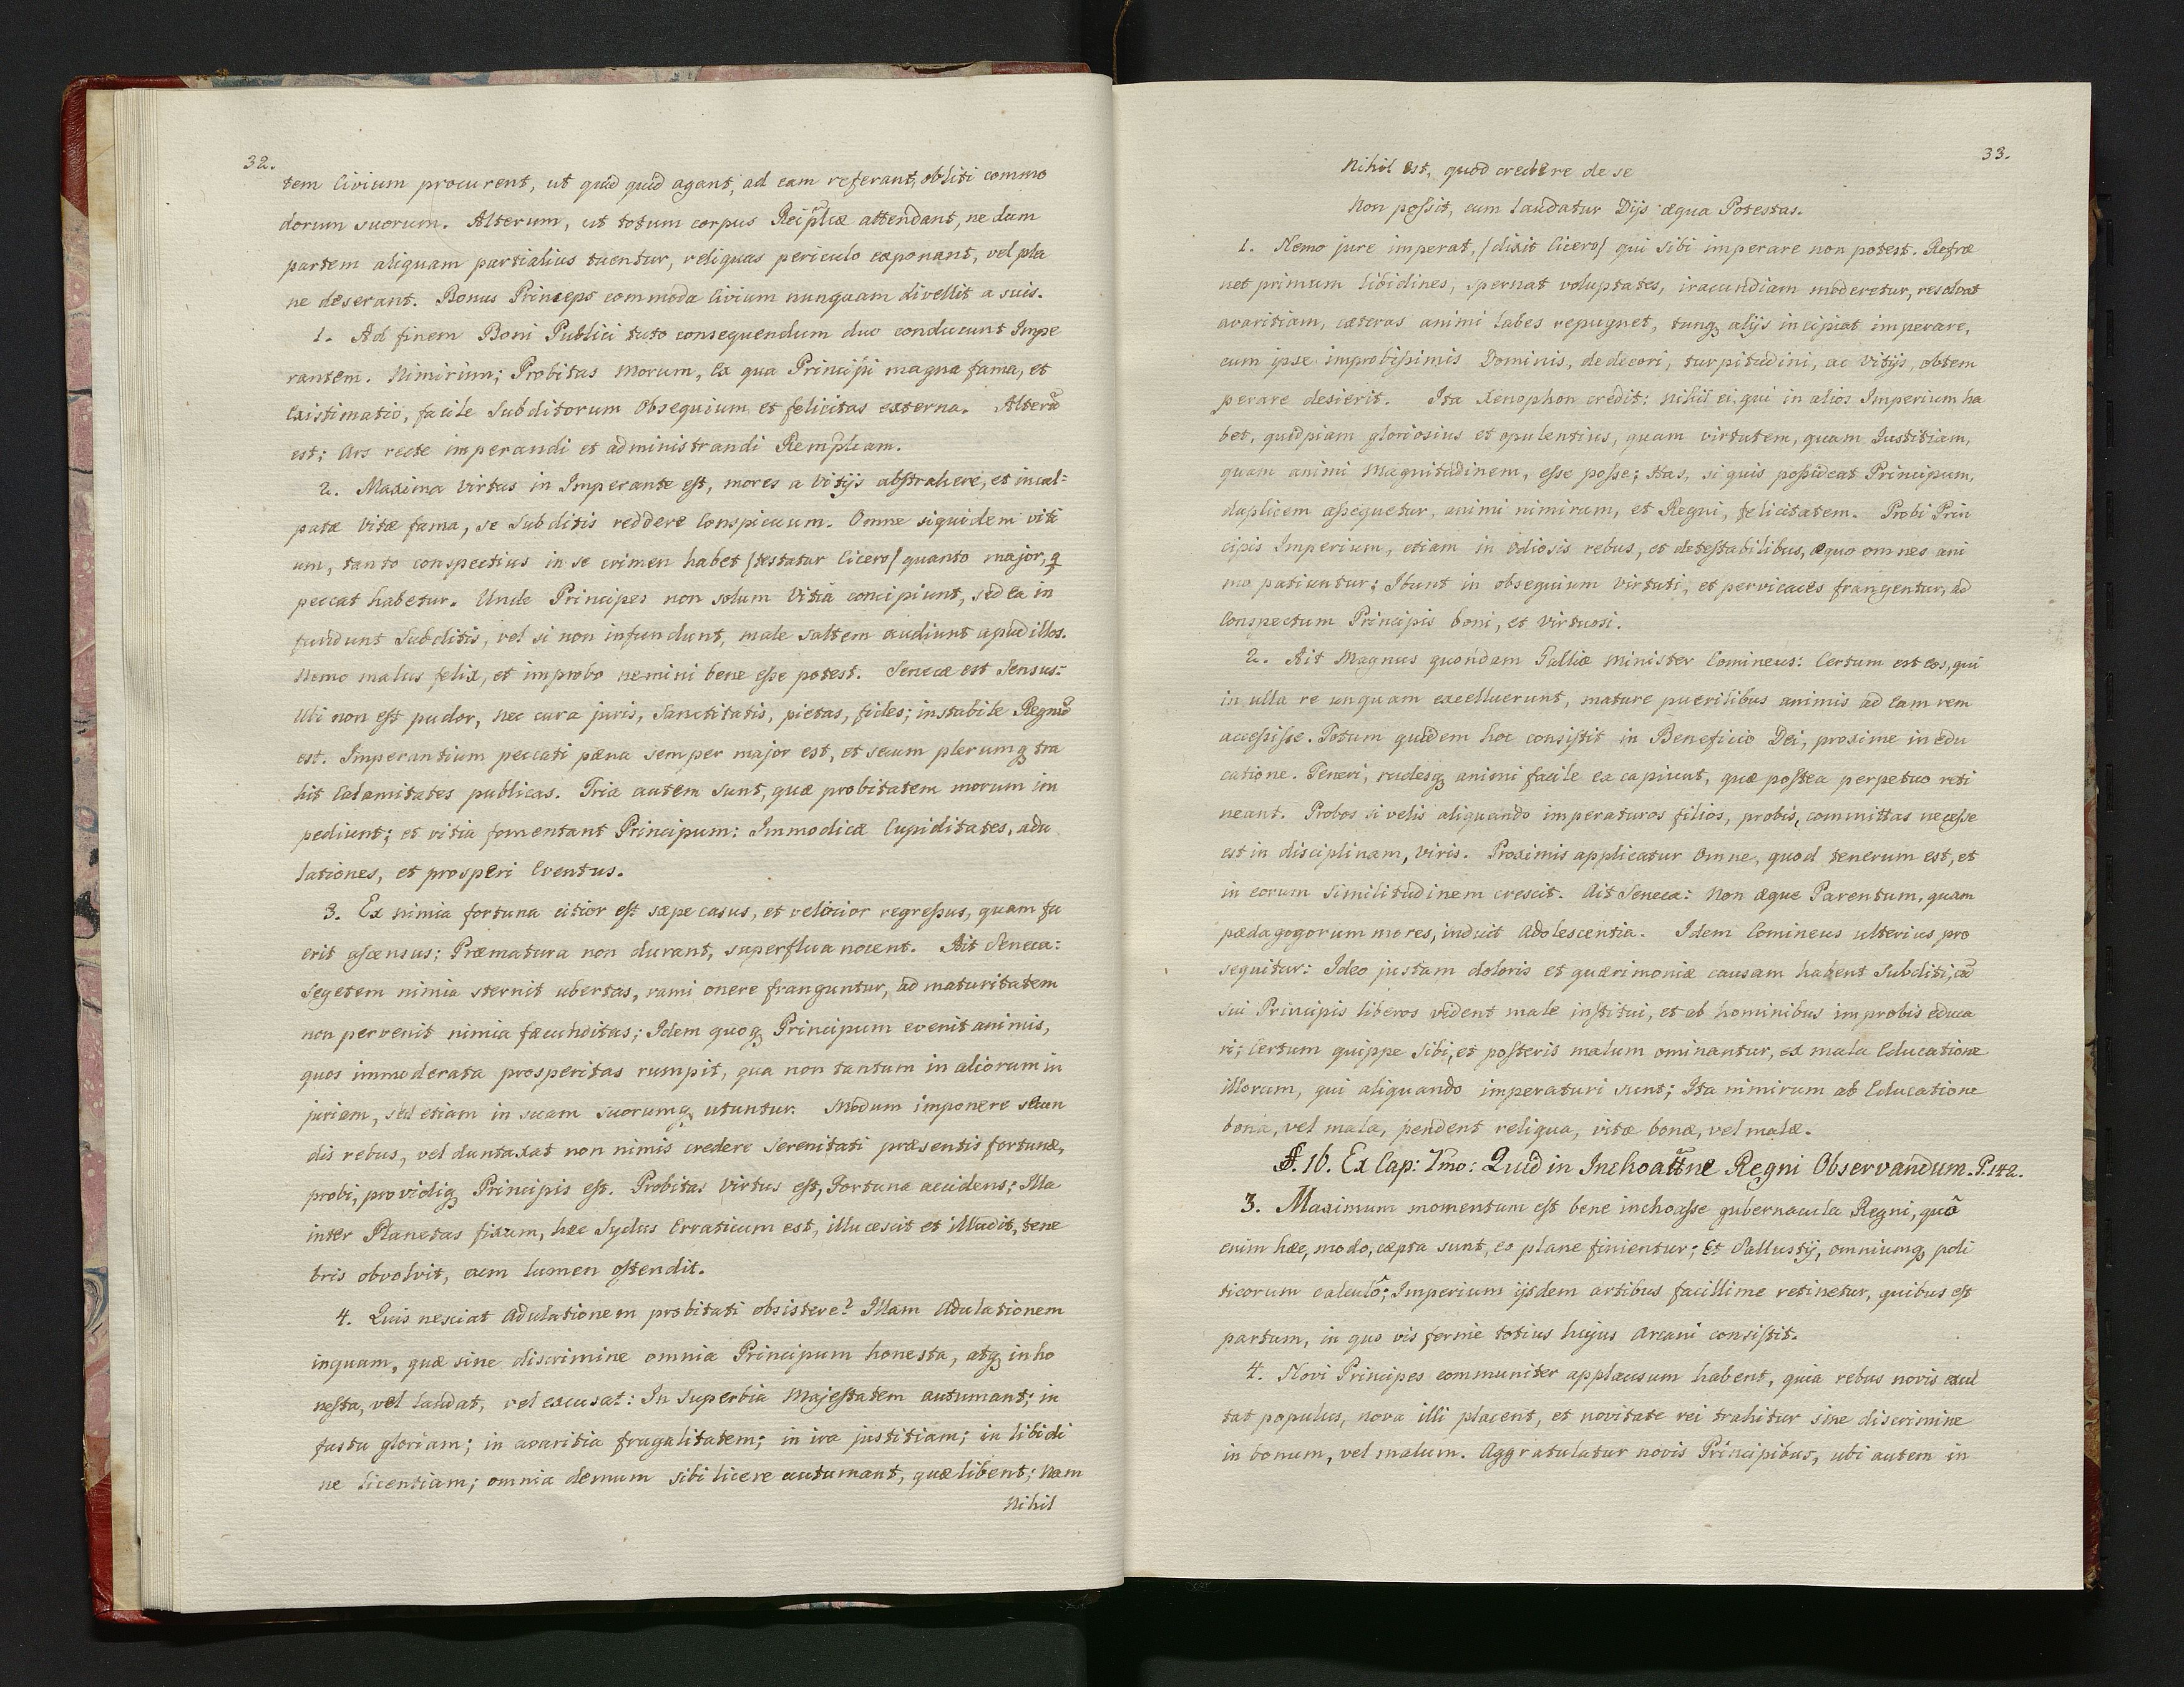 32.
tem Civium procurent, ut quid quid agant, ad eam referant, obliti commo
dorum suorum. Alterum, ut totum corpus Reip̃licæ attendant, ne dum
partem aliquam partialius tuentur, reliquas periculo exponant, vel pla
ne deserant. Bonus Princeps commoda Civium nunquam divellit a suis.
1. Ad finem Boni Publici tuto consequendum duo conducunt Impe
rantem. Nimirum; Probitas Morum, Ex qua Principi magna fama, et
Existimatio, facile Subditorum Obsequium et felicitas externa. Alterã
est: Ars recte imperandi et administrandi Remp̃licam.
2. Maxima Virtus in Imperante est, mores a Vitijs abstrahere, et incul=
patæ Vitæ fama, se Subditis reddere Conspicuum. Omne siquidem viti
um, tanto conspectius in se crimen habet [testatur Cicero] quanto major, q̃
peccat habetur. Unde Principes non solum Vitia concipiunt, sed Ea in
fundunt Subditis, vel si non infundunt, male saltem audiunt apud illos.
Nemo malus felix, et improbo nemini bene esse potest. Senecæ est Sensus:
Ubi non est pudor, nec cura juris, Sanctitatis, pietas, fides; instabile Regnũ
est. Imperantium peccati pæna semper major est, et secum plerumq; tra
hit Calamitates publicas. Tria autem Sunt, quæ probitatem morum im
pediunt; et vitia fomentant Principum: Immodicæ Cupiditates, adu
lationes, et prosperi Eventus.
3. Ex nimia fortuna citior est sæpe casus, et velocior regressus, quam fu
erit ascensus; Præmatura non durant, superflua nocent. Ait Seneca:
Segetem nimia sternit ubertas, rami onere franguntur, ad maturitatem
non pervenit nimia fæcunditas; Idem quoq; Principum evenit animis,
quos immoderata prosperitas rumpit, qua non tantum in aliorum in
juriam, sed etiam in suam suorumq; utuntur. Modum imponere secun
dis rebus, vel duntaxat non nimis credere Serenitati præsentis fortunæ,
probi, providiq; Principis est. Probitas Virtus est, Fortuna accidens; Illa
inter Planetas fixum, hæc Sydus Erraticum est, illucescit et illudit, tene
bris obvolvit, cum lumen ostendit.
4. Quis nesciat Adulationem probitati obsistere? Illam Adulationem
inquam, quæ sine discrimine omnia Principum honesta, atq; inho
nesta, vel laudat, vel excusat: In Superbia Majestatem autumant; in
fastu gloriam; in avaritia frugalitatem; in ira justitiam; in libidi
ne licentiam; omnia demum sibi licere autumant, quæ libent; Nam
Nihil
33.
Nihil est, quod credere de se
Non possit, cum laudatur Dijs æqua Potestas.
1. Nemo jure imperat, [dixit Cicero] qui Sibi imperare non potest. Refræ
net primum libidines, spernat voluptates, iracundiam moderetur, resolvat
avaritiam, cæteras animi labes repugnet, tunq; alijs incipiat imperare,
cum ipse improbissimis Dominis, dedecori, turpitudini, ac Vitijs, obtem
perare desierit. Ita Xenophon credit: Nihil ei qui in alios Imperium ha
bet, quidpiam gloriosius et opulentius, quam virtutem, quam Justitiam,
quam animi Magnitudinem, esse posse; Has, si quis possideat Principum,
duplicem assequetur, animi nimirum, et Regni, felicitatem. Probi Prin
cipis Imperium, etiam in Odiosis rebus, et detestabilibus, æquo omnes ani
mo patiuntur; Ibunt in obsequium Virtuti, et pervicaces frangentur, ad
Conspectum Principis boni, et Virtuosi.
2. Ait Magnus quondam Galliæ Minister Comineus: Certum est Eos, qui
in ulla re unquam excelluerunt, mature puerilibus animis ad Eam rem
accessisse. Totum quidem hoc consistit in Beneficio Dei, proxime in edu
catione. Teneri, rudesq; animi facile Ea capiunt, quæ postea perpetuo reti
neant. Probos si velis aliquando imperaturos filios, probis, committas necesse
est in disciplinam, viris. Proximis applicatur Omne, quod tenerum est, et
in eorum Similitudinem crescit. Ait Seneca: Non æque Parentum, quam
pædagogorum mores, induit Adolescentia. Idem Comineus ulterius pro
sequitur: Ideo justam doloris et quærimoniæ causam habent Subditi, cũ
sui Principis liberos vident male institui, et ab hominibus improbis educa
ri; Certum quippe Sibi, et posteris malum ominantur, ex mala Educatione
illorum, qui aliquando imperaturi sunt; Ita nimirum ab Educatione
bona, vel mala, pendent reliqua, vitæ bonæ, vel malæ.
§. 16. Ex Cap: Vmo: Quid in Inchoatt̃ne Regni Observandum. P. 142.
3. Maximum momentum est bene inchoasse gubernacula Regni, quô
enim hæc, modo, cæpta sunt, eo plane finientur; Et Sallustij, omniumq; poli
ticorum calculô; Imperium ijsdem artibus facillime retinetur, quibus est
partum, in quo vis ferme totius hujus Arcani consistit.
4. Novi Principes communiter applausum habent, quia rebus novis exul
tat populus, nova illi placent, et novitate rei trahitur sine discrimine
in bonum, vel malum. Aggratulatur novis Principibus, ubi autem in